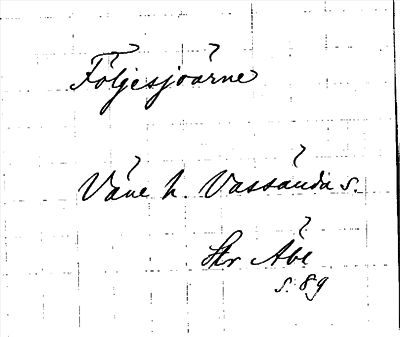 Följesjöarne
Väne h. Vassända s.
Skr Åbe
s. 89